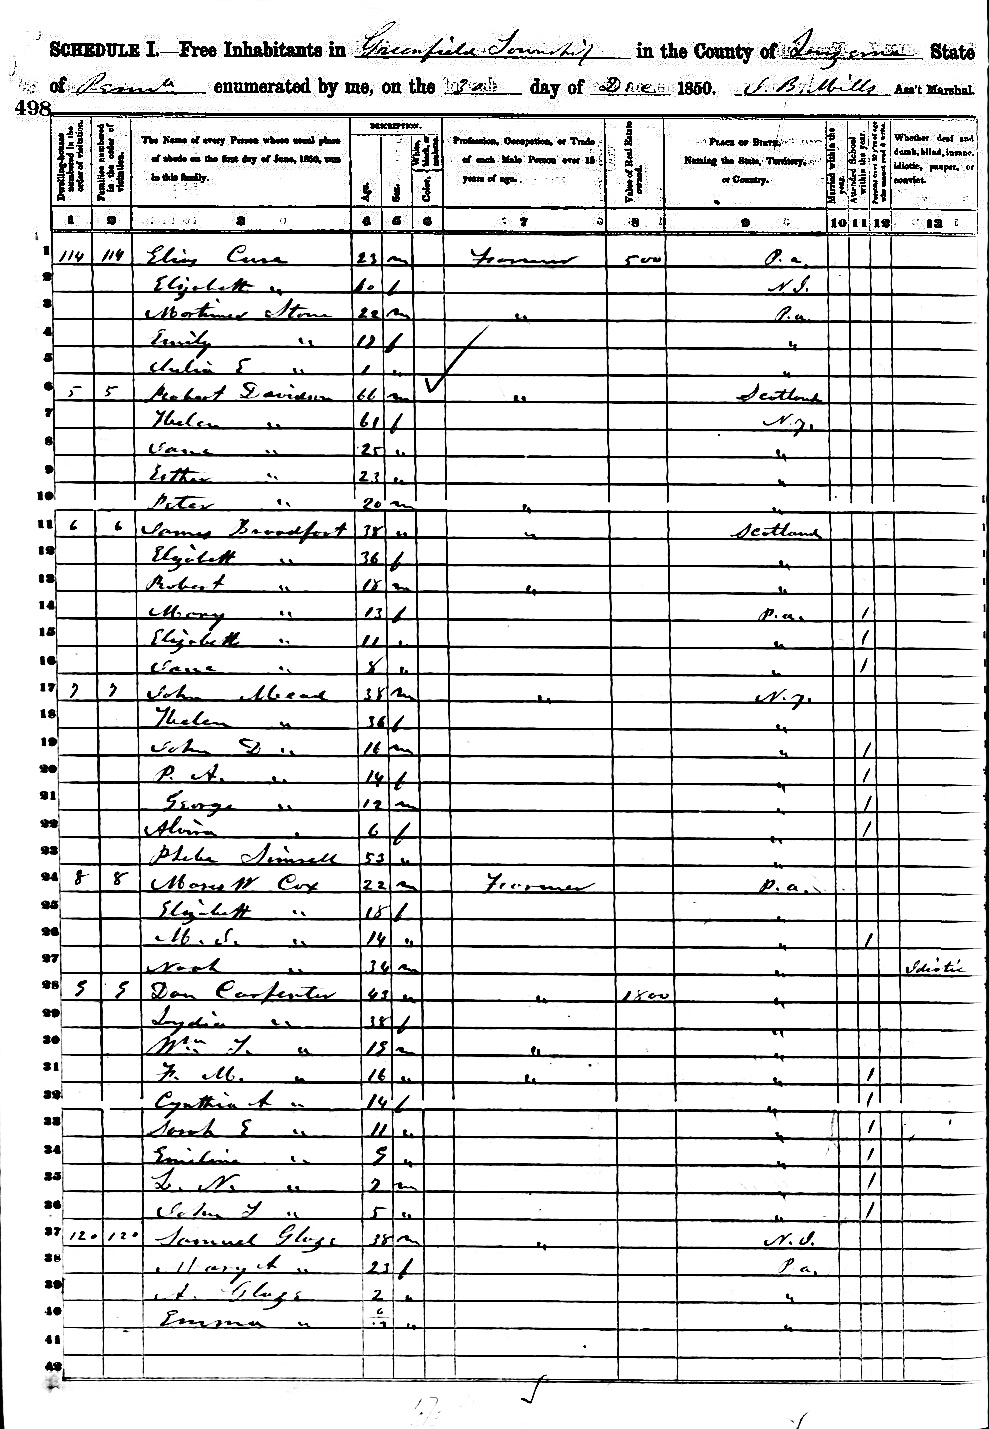 SCHEDULE I.—Free Inhabitants in Greenfield Township in the County of Luzerne State
of Penna enumerated by me, on the day of Dec 1850. J. B. Mills Ass't Marshal.
498
Dwelling-houses numbered in the order of visitation.
Families numbered in the order of visitation.
The Name of every Person whose usual place of abode on the first day of June, 1850, was in this family.
DESCRIPTION.
Age.
Sex.
Color, White, black, or mulatto.
Profession, Occupation, or Trade of each Male Person over 15 years of age.
Value of Real Estate owned.
PLACE OF BIRTH, Naming the State, Territory, or Country.
Married within the year.
Attended School within the year.
Persons over 20 y'rs of age who cannot read & write.
Whether deaf and dumb, blind, insane, idiotic, pauper, or convict.
1 2 3 4 5 6 7 8 9 10 11 12 13
1 114 114 Elias 23 m Farmer 500 P.a.
2 Elizabeth " 60 f N.J.
3 Mortimer Stone 22 m " P.a.
4 Emily " f "
5 Julia E " 1 " "
6 5 5 Robert Davidson 66 m " Scotland
7 Helen " 61 f N.y.
8 Jane " 25 " "
9 Esther " 23 " "
10 Peter " 20 m " "
11 6 6 James Broadfoot 38 " " Scotland
12 Elizabeth " 36 f "
13 Robert " 18 m " "
14 Mary " 13 f P.a. 1
15 Elizabeth " 11 " " 1
16 Jane " 8 " " 1
17 7 7 John Mead 38 m " N.y.
18 Helen " 36 f "
19 John D " 16 m " 1
20 P. A. " 14 f " 1
21 George " 12 m " 1
22 Alvira " 6 f " 1
23 Phebe 53 " "
24 8 8 Moses W Cox 22 m Farmer P.a.
25 Elizabeth " 18 f "
26 M. S. " 14 " " 1
27 Noah " 34 m " Idiotic
28 9 9 Dan Carpenter 43 " " 1800 "
29 Lydia " 38 f "
30 Wm T. " 19 m " "
31 F. M. " 16 " " " 1
32 Cynthia A " 14 f " 1
33 Sarah E " 11 " " 1
34 Emiline " 9 " " 1
35 L. N. " 7 m " 1
36 John T " 5 " " 1
37 120 120 Samuel 38 m " N.J.
38 Mary A " 23 f P.a.
39 A. 2 " "
40 Emma " "
41
42